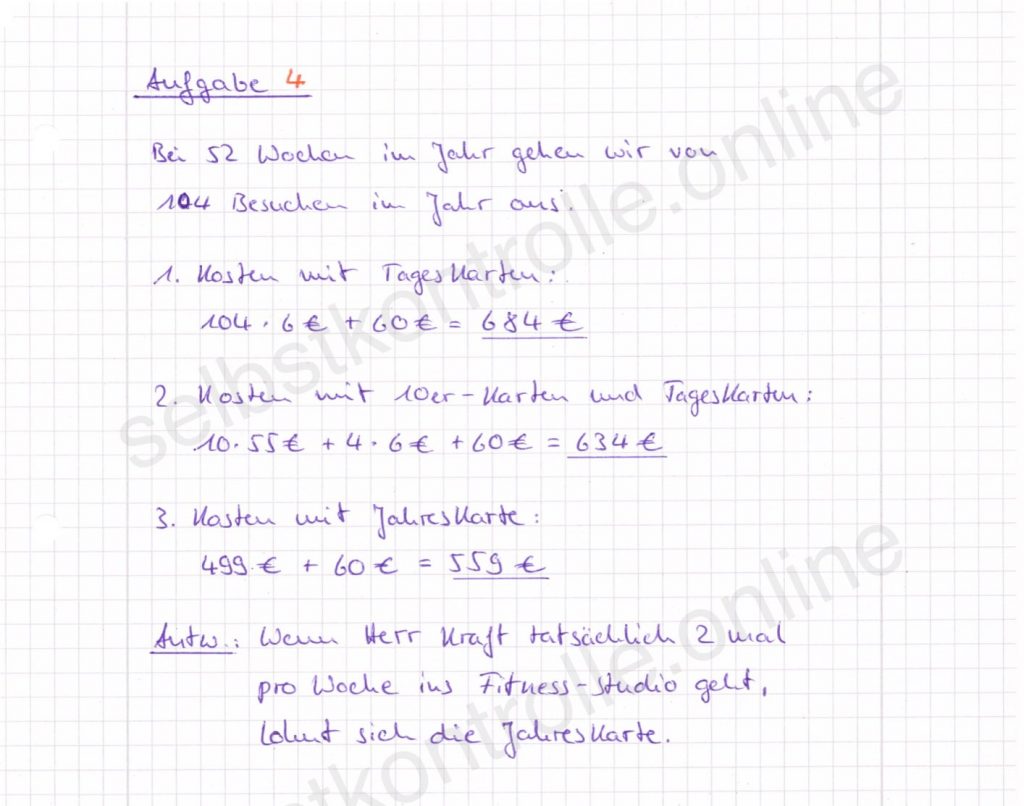 Aufgabe 4
Bei 52 Wochen im Jahr gehen wir von
104 Besuchen im Jahr aus.
1. Kosten mit Tageskarten:
104 · 6 € + 60 € = 684 €
2. Kosten mit 10er-Karten und Tageskarten:
10 · 55 € + 4 · 6 € + 60 € = 634 €
3. Kosten mit Jahreskarte:
499 € + 60 € = 559 €
Antw.: Wenn Herr Kraft tatsächlich 2 mal
pro Woche ins Fitness-Studio geht,
lohnt sich die Jahreskarte.
selbstkontrolle.online
selbstkontrolle.online